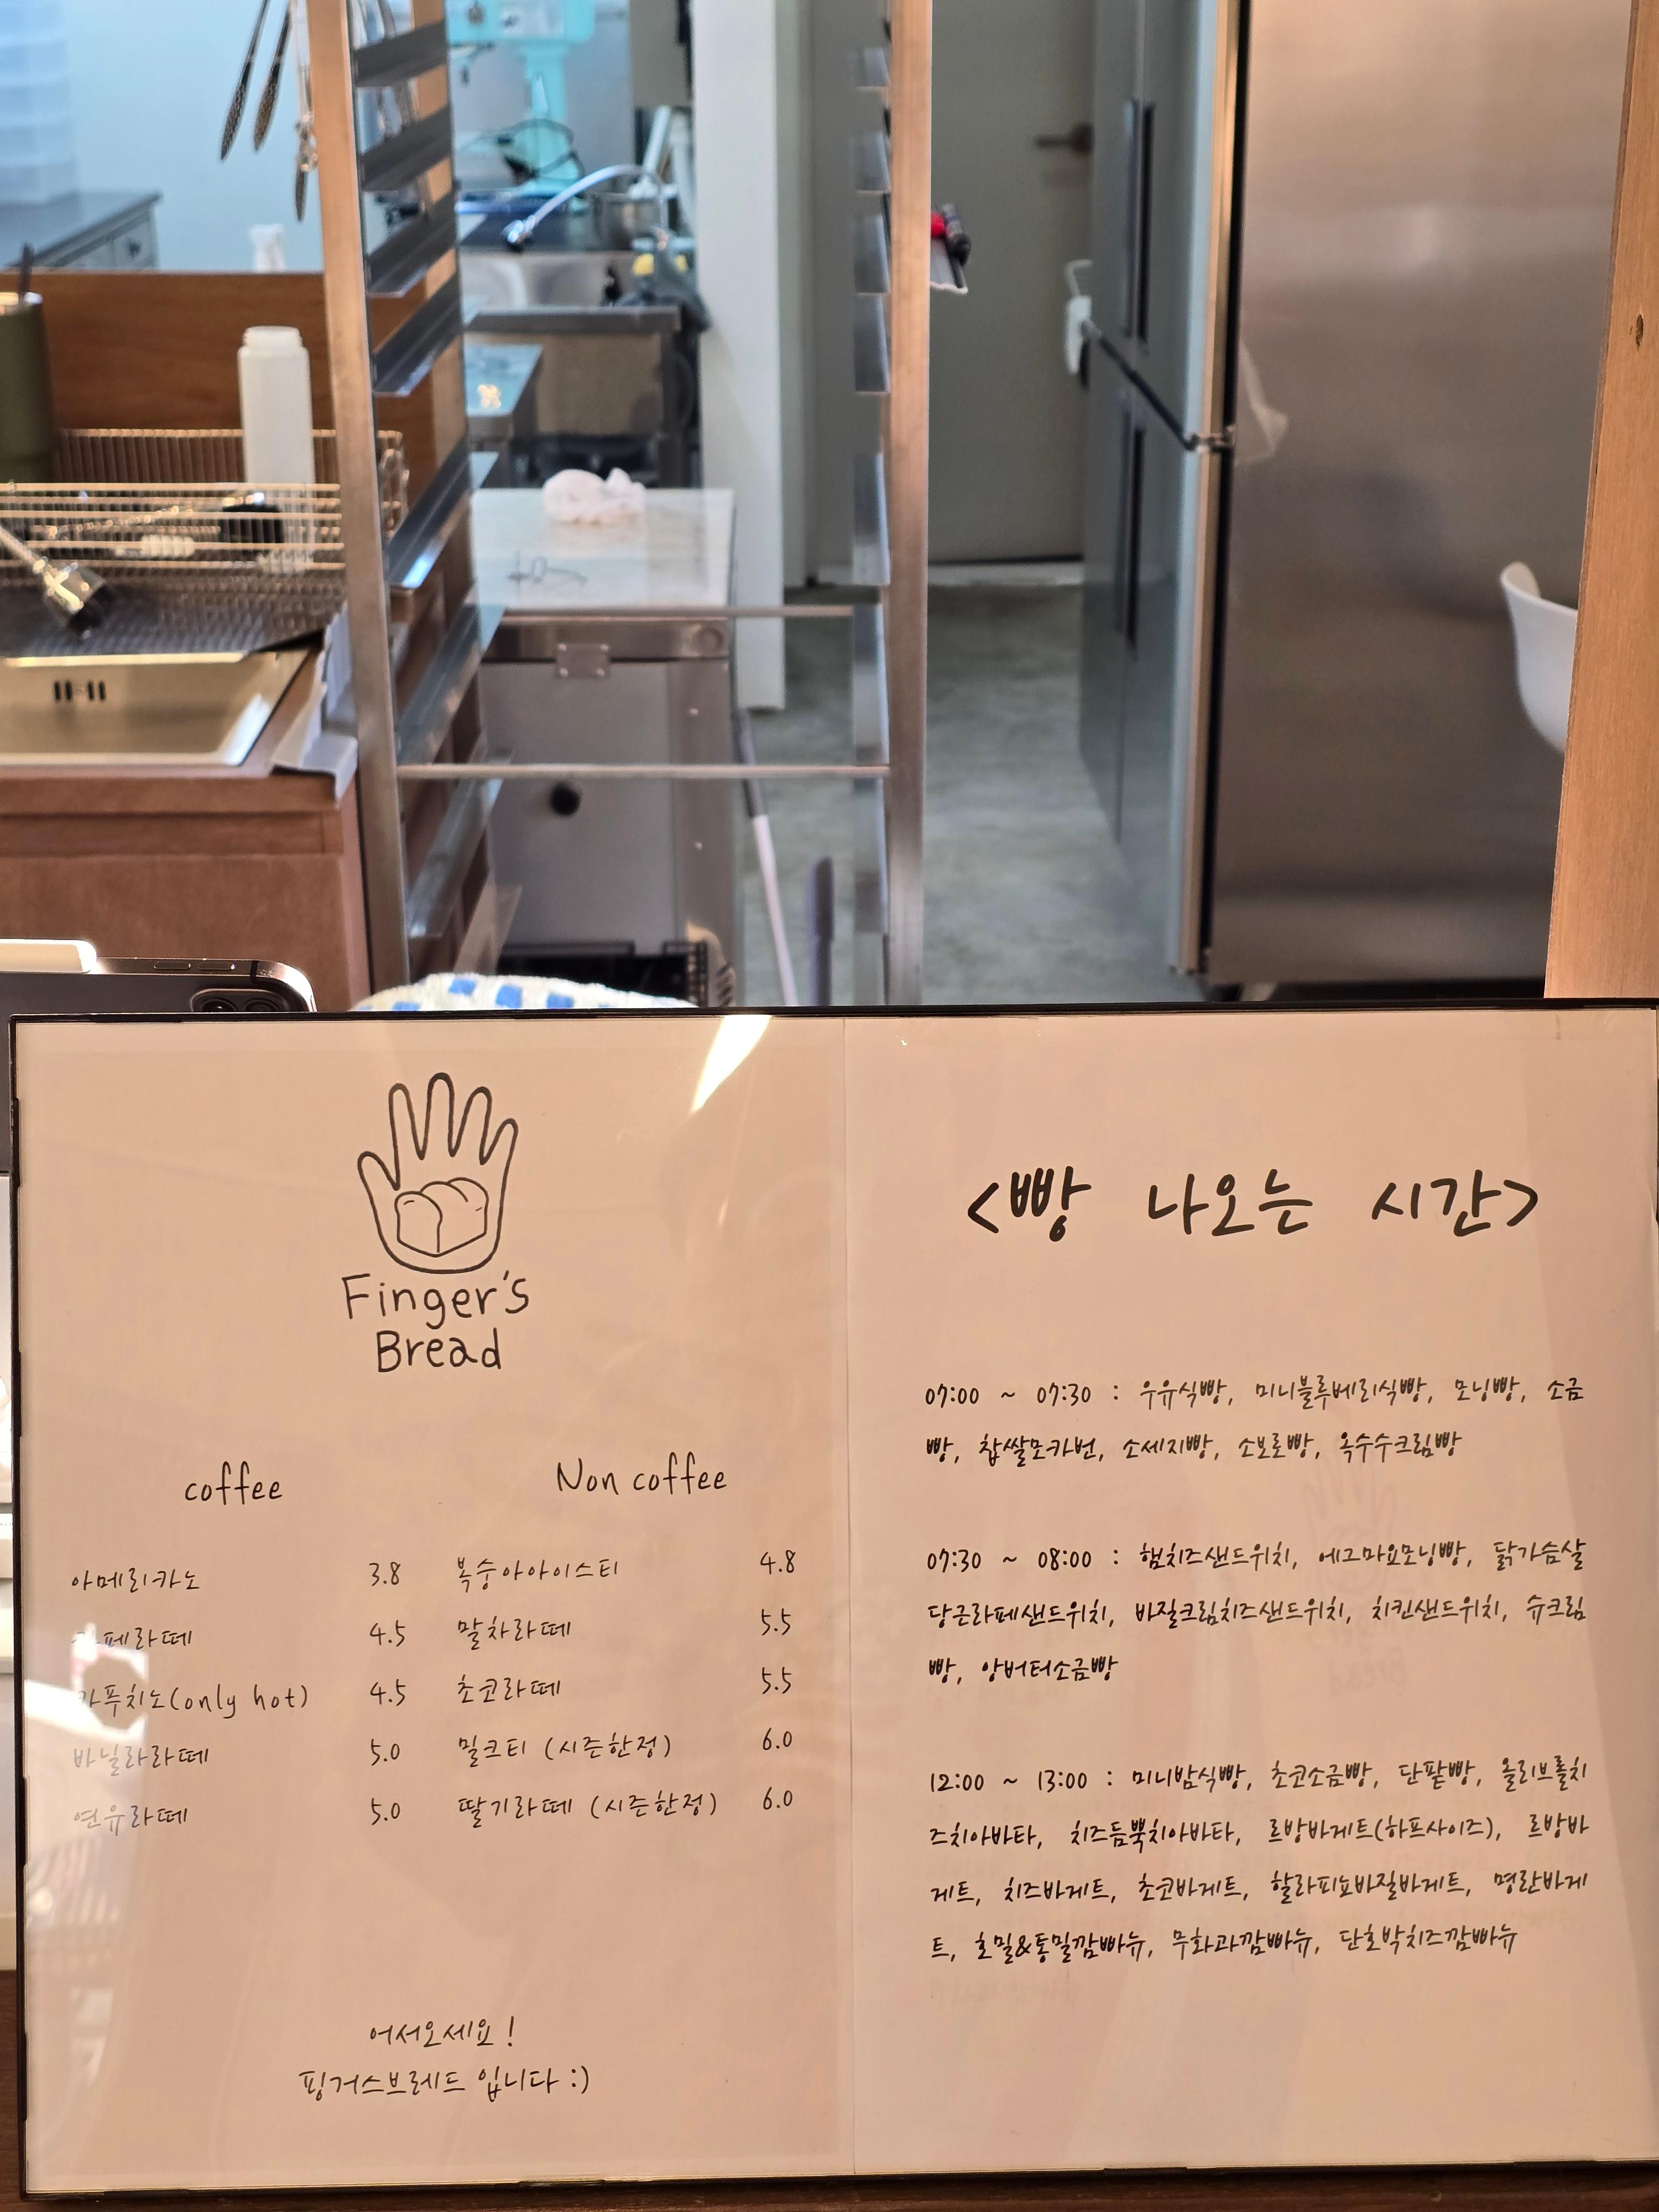 Finger's
Bread
coffee
아메리카노 3.8
카페라떼 4.5
카푸치노(only hot) 4.5
바닐라라떼 5.0
연유라떼 5.0
Non coffee
복숭아아이스티 4.8
말차라떼 5.5
초코라떼 5.5
밀크티 (시즌한정) 6.0
딸기라떼 (시즌한정) 6.0
어서오세요!
핑거스브레드 입니다 :)
<빵 나오는 시간>
07:00 ~ 07:30 : 우유식빵, 미니블루베리식빵, 모닝빵, 소금
빵, 찹쌀모카번, 소세지빵, 소보로빵, 옥수수크림빵
07:30 ~ 08:00 : 햄치즈샌드위치, 에그마요모닝빵, 닭가슴살
당근라페샌드위치, 바질크림치즈샌드위치, 치킨샌드위치, 슈크림
빵, 앙버터소금빵
12:00 ~ 13:00 : 미니밤식빵, 초코소금빵, 단팥빵, 올리브롤치
즈치아바타, 치즈듬뿍치아바타, 르방바게트(하프사이즈), 르방바
게트, 치즈바게트, 초코바게트, 할라피뇨바질바게트, 명란바게
트, 호밀&통밀깜빠뉴, 무화과깜빠뉴, 단호박치즈깜빠뉴